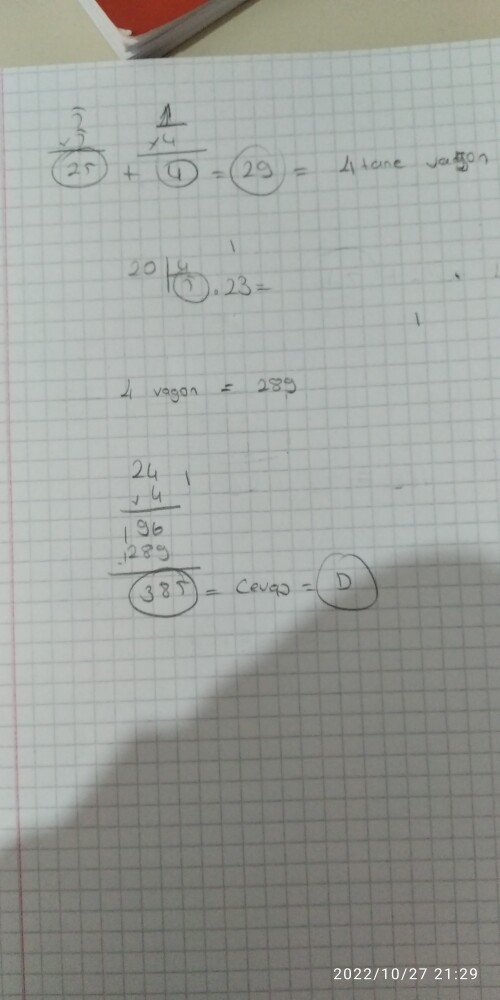 5 1
x 5 x 4
25 + 4 = 29 = 4 tane vagon
20 | 4
5 . 23 =
4 vagon = 289
24
x 4
96
289
385 = Cevap = D
2022/10/27 21:29